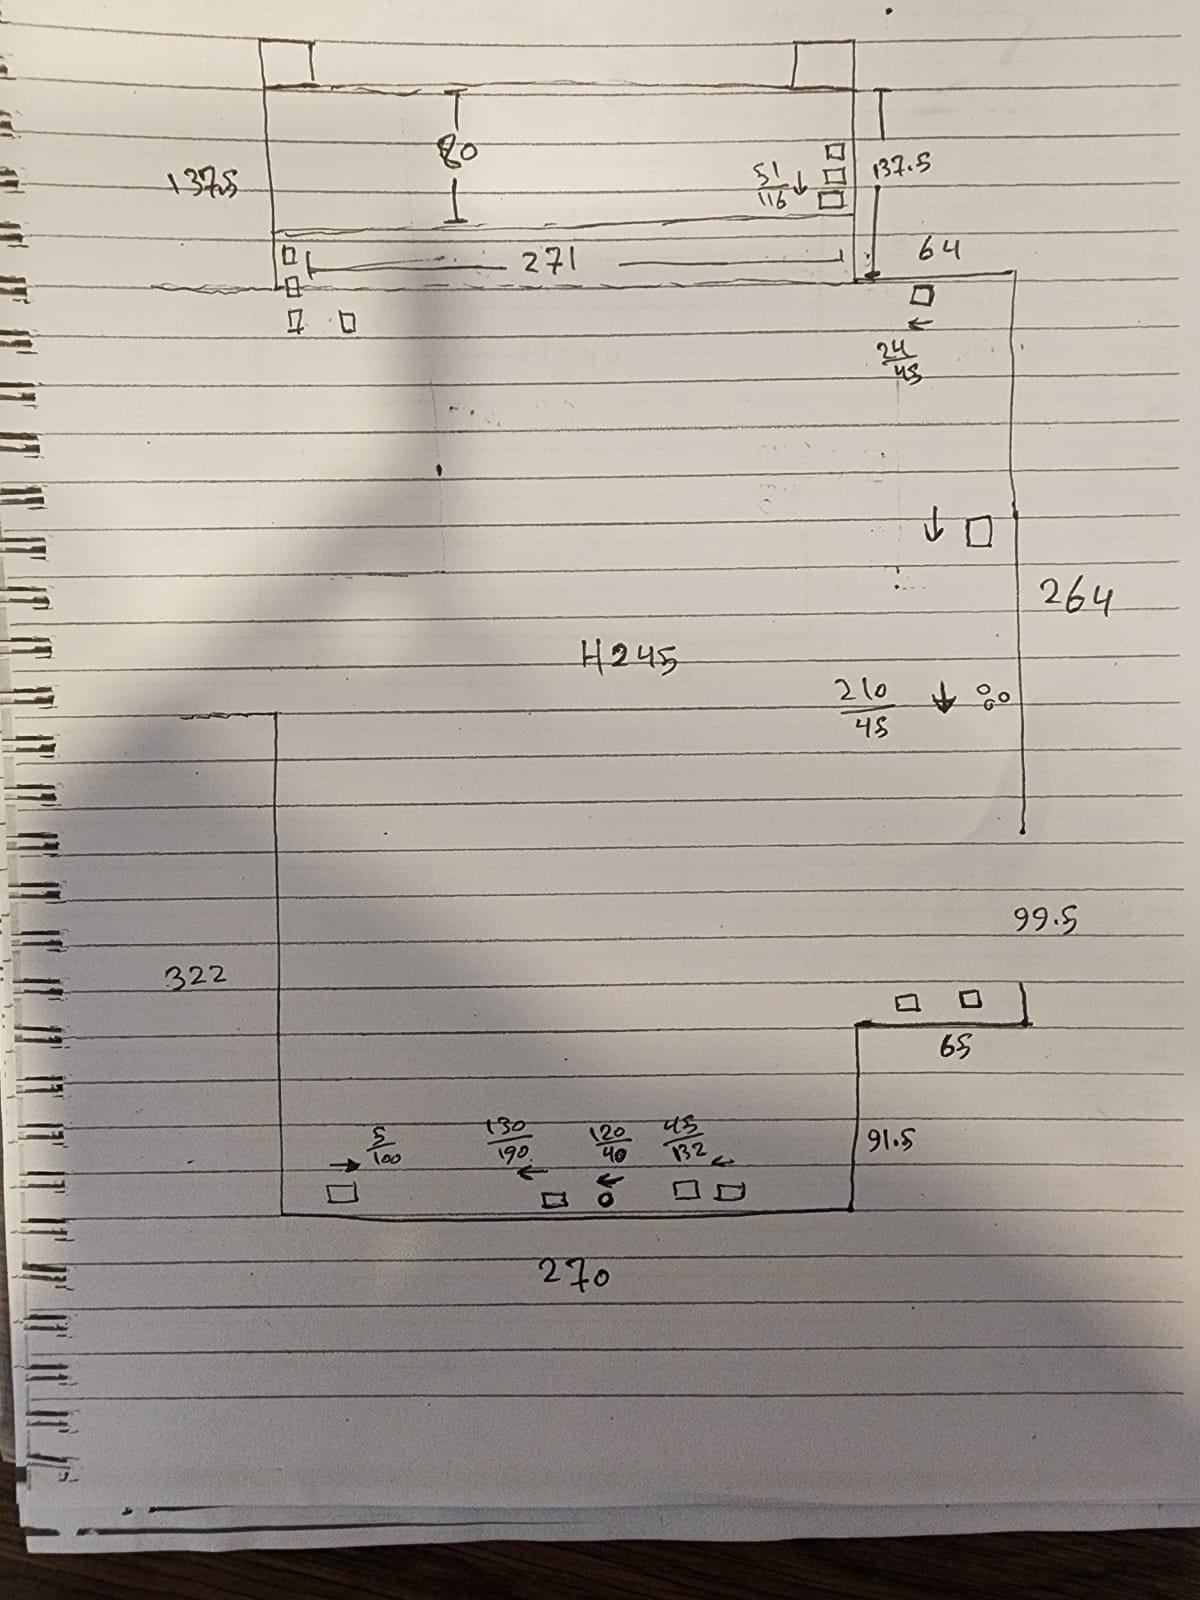 80
137.5
51
116
137.5
271
64
24
45
264
H245
210
45
99.5
322
65
5
100
130
190
120
40
45
132
91.5
270